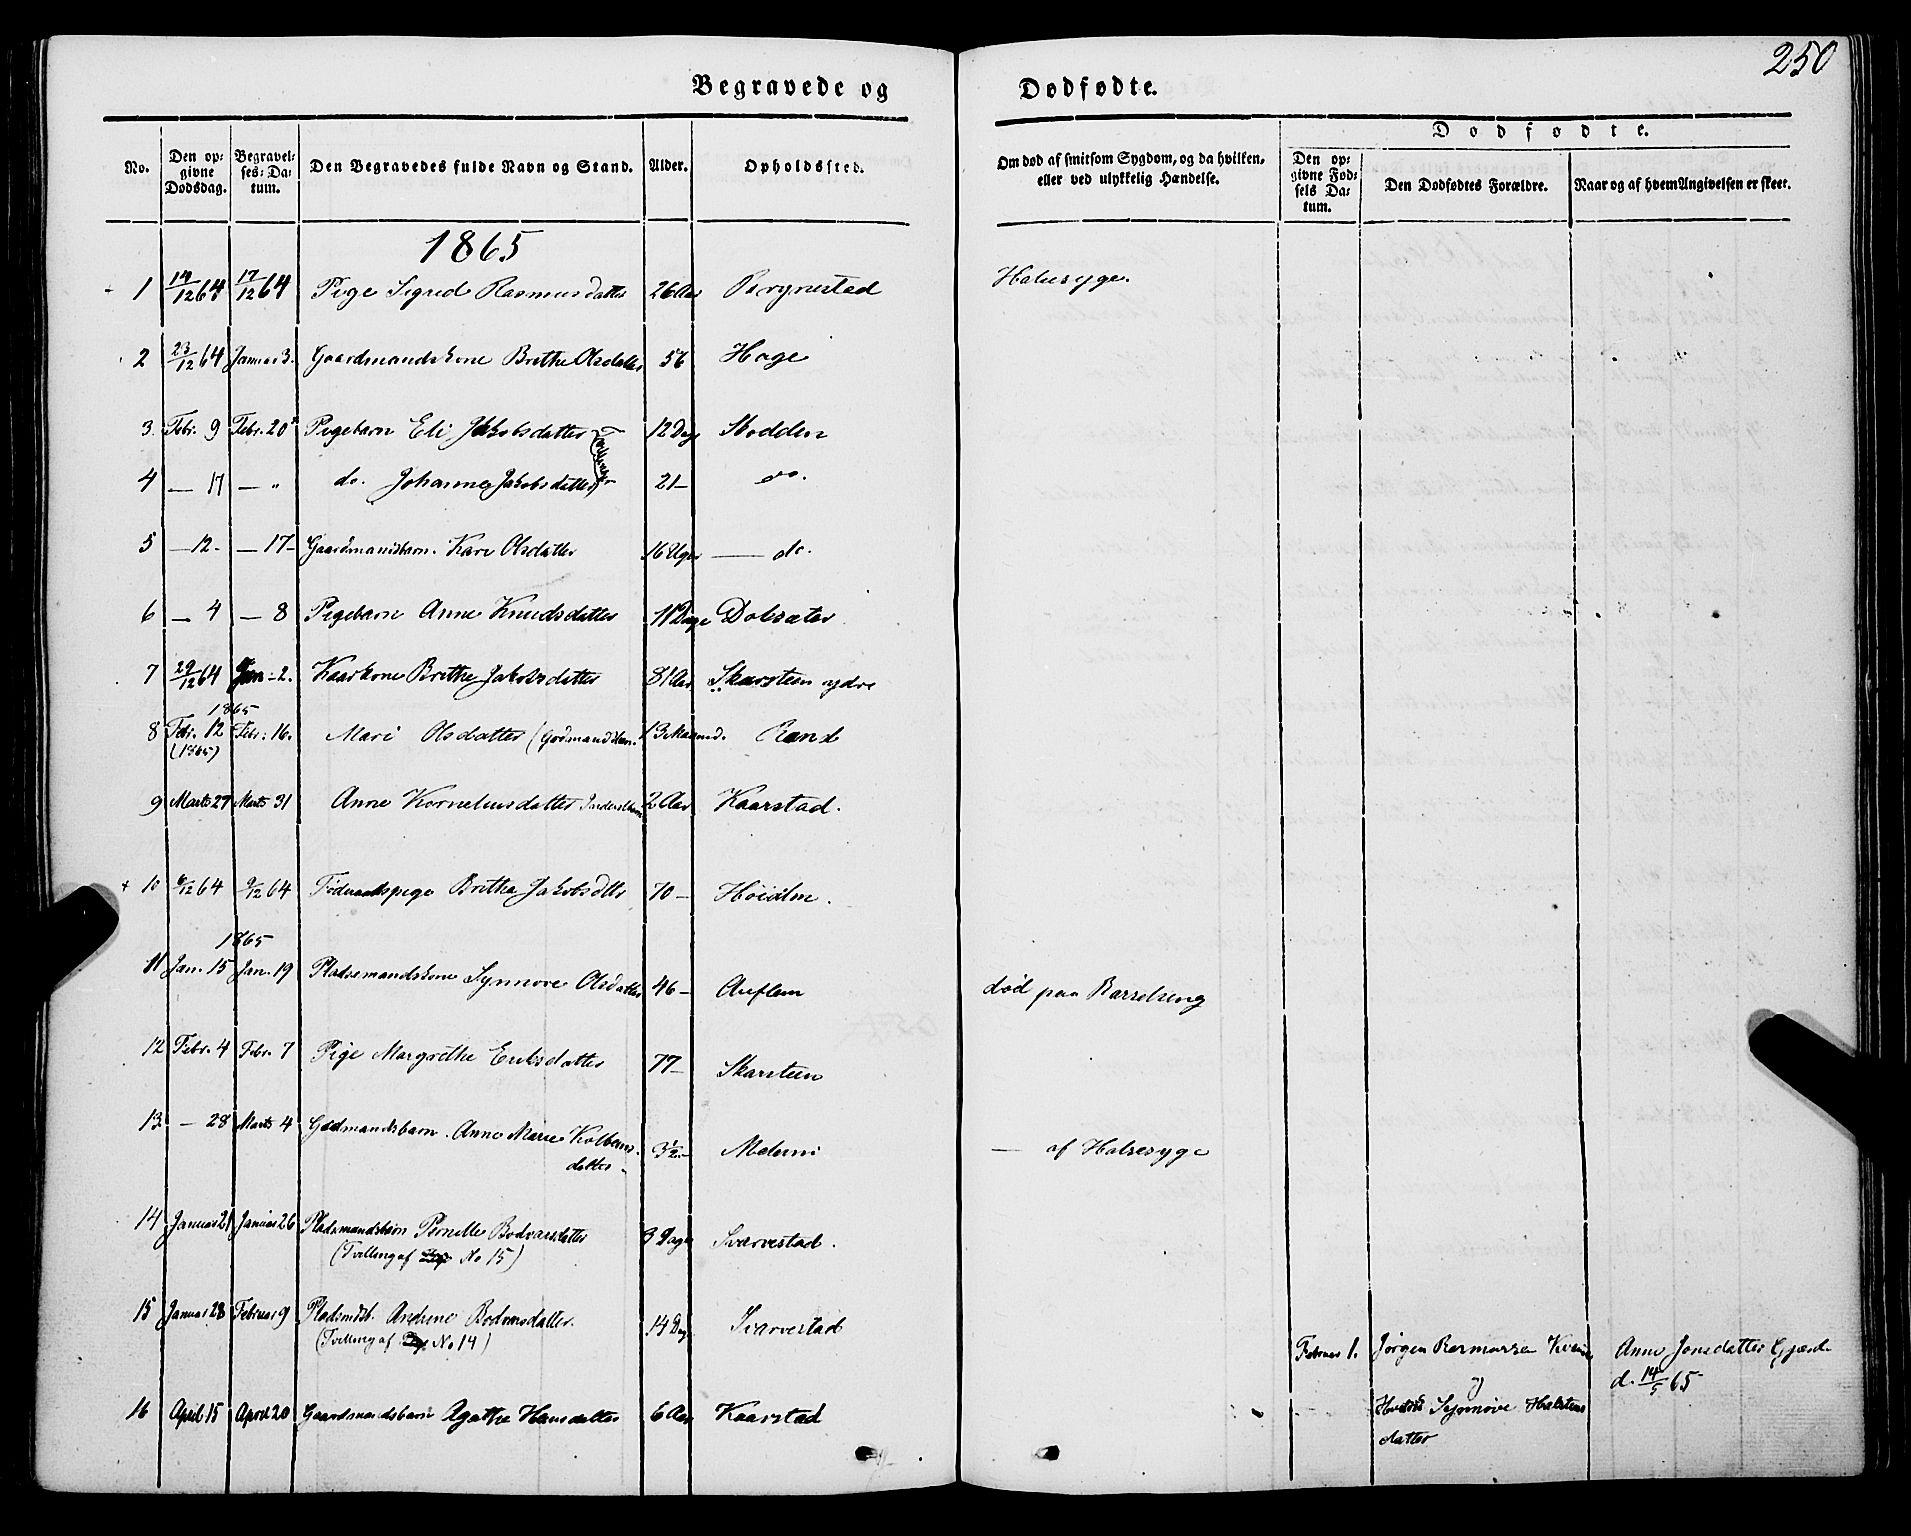 250
Begravede og Dødfødte.
No. Den opgivne Dødsdag. Begravelses-Datum. Den Begravedes fulde Navn og Stand. Alder. Opholdssted. Om død af smitsom Sygdom, og da hvilken, eller ved ulykkelig Hændelse. Dødfødte. Den opgivne Fødsels Datum. Den Dødfødtes Forældre. Naar og af hvem Angivelsen er skeet.
1865
1 14/12 64 17/12 64 Pige Sigrid Rasmusdatter 26 Aar Halsesyge.
2 23/12 64 Januar 3. Gaardmandskone Brithe Olsdatter 56 Hage
3. Febr. 9 Febr. 20 Pigebarn Eli Jakobsdatter 12 Dage Stodden
4 — 17 — „ do. Johanne Jakobsdatter 21 — do.
5 — 12. — 17 — Gaardmandsbarn. Kari Olsdatter 16 Uger — do.
6 — 4 — 8 Pigebarn Anne Knudsdatter 11 Dage
7 29/12 64 Jan. 2. Kaarkone Brithe Jakobsdatter 81 Aar Skarsteen ydre
1865
8 Febr. 12 Febr. 16. Mari Olsdatter 13 Rand
(1865)
9 Marts 27 Marts 31 Anne Korneliusdatter 2 Aar Kaarstad.
+ 10 6/12 64 9/12 64 Føderaadspige Brithe Jakobsdtr 70 —
1865
11 Jan. 15 Jan. 19 Pladsemandskone Synnøve Olsdatter 46 — Auflem død paa Barselseng
12 Febr. 4 Febr. 7 Pige Margrethe Eriksdatter 77 — Skarsteen
13. — 28 Marts 4 Gdmandsbarn. Anne Marie Kolbens-
datter 3 1/2 — — af Halsesyge
14 Januar 21 Januar 26 Pladsmandsbarn Pernille 3 Dage Svarvestad.
(Tvilling af No 15)
15 Januar 28 Februar 9 Pladsmdsb. Andrine 14 Dg. Svarvestad
(Tvilling af No 14)
Februar 1. Jørgen Rasmussen Anne Jonsdatter Gjærde
og d. 14/5 65
16 April 15 April 20 Gaardmandsbarn Agathe Hansdatter 6 Aar Kaarstad
Hustru Synnøve Halstens
datter